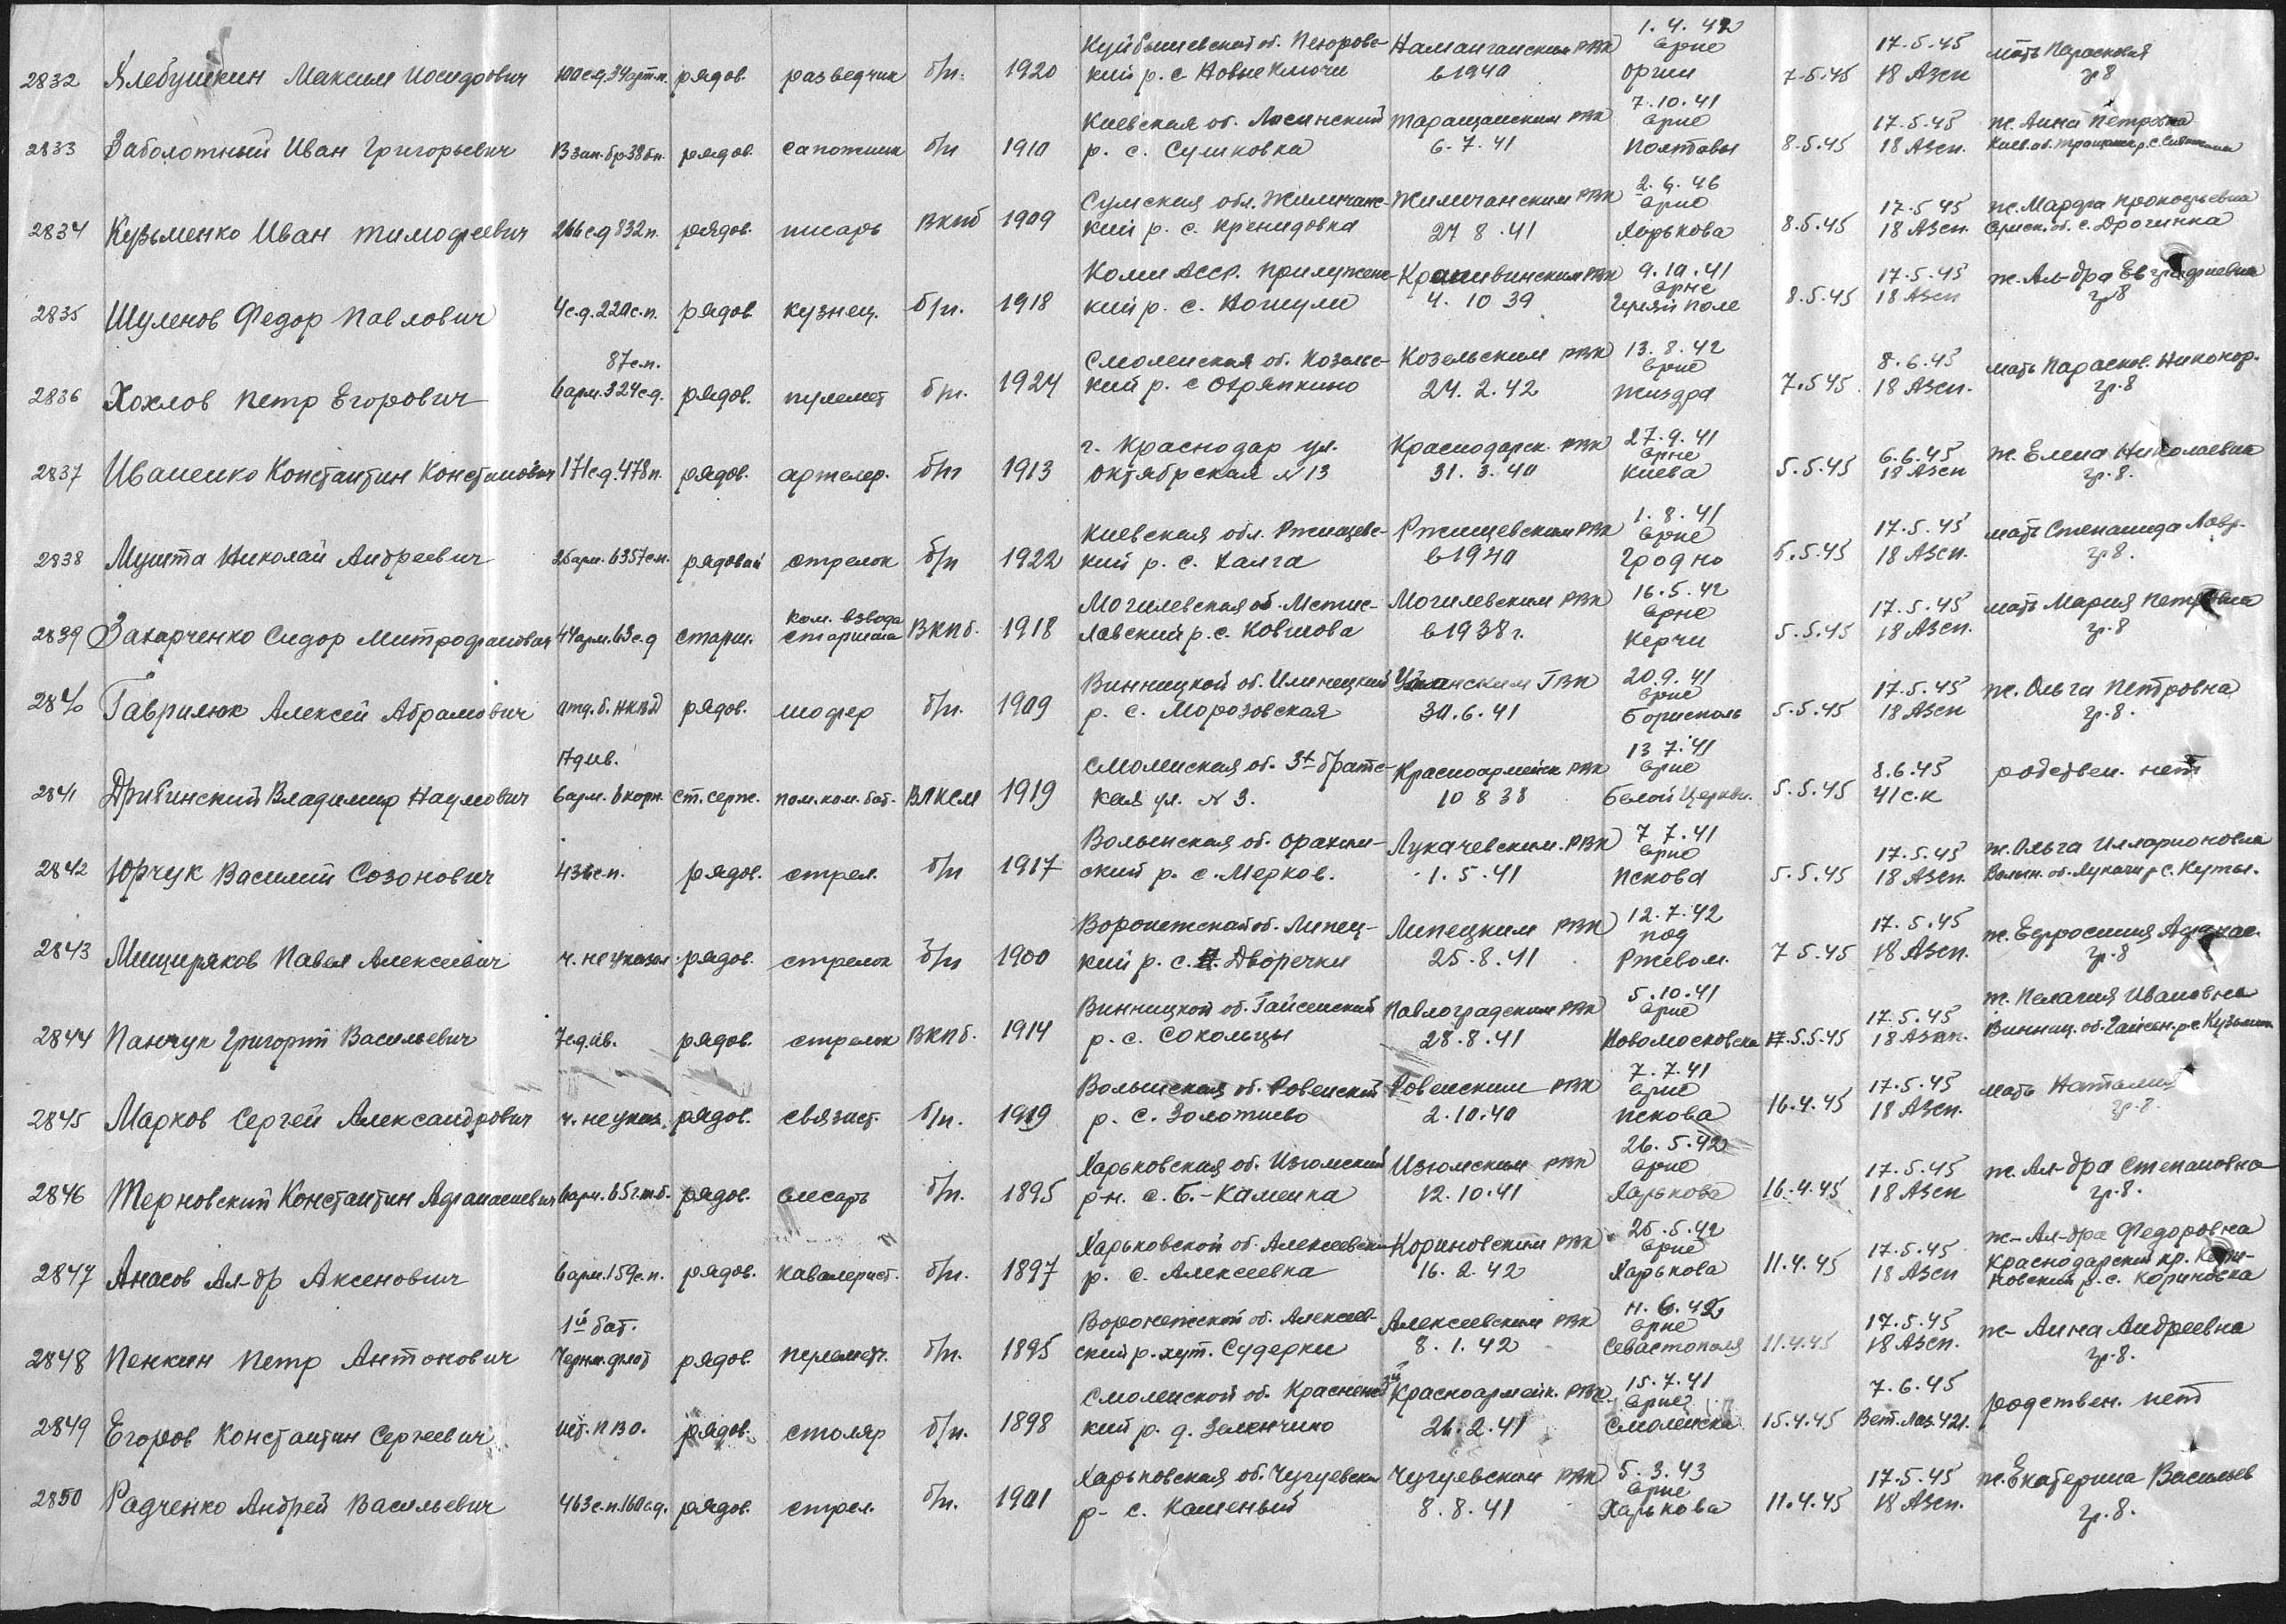 2832 Хлебушкин Максим Иосифович 100 с.д. 34 арт.п. рядов. разведчик б/п. 1920 Куйбышевской об. Похровс- Наманганским РВК 1.4.42 17.5.45 мать Парасковия
кий р. с Новые Ключи в 1940 оршы 7.5.45 18 Азсп гр8
2833 Заболотный Иван Григорьевич рядов. сапожник б/п 1910 Киевская об. Лисинский Таращанским РВК 7.10.41 17.5.45 ж. Анна Петровна
р. с. Сушковка 6.7.41 Полтавы 8.5.45 18 Азсп.
2834 Кузьменко Иван Тимофеевич 266 с.д 832 п. рядов. писарь ВКПб 1909 Сумская обл. Жилинчанс- Жилинчанским РВК 2.6.46 17.5.45 ж. Марфа Прокофьевна
кий р. с. Кренидовка 27 8.41 Харькова 8.5.45 18 Азсп. с. Дрогинка
2835 Шуленов Федор Павлович 4 с.д. 220 с.п. рядов. кузнец. б/п. 1918 Коми Асср. Прилузенс- Крапивинским РВК 9.10.41 17.5.45 ж. Ал-дра Евграфиевна
кий р. с. Ношули 4.10 39 Гуляй Поле 8.5.45 18 Азсп гр8
87 с.п.
2836 Хохлов Петр Егорович 6 арм. 324 с.д. рядов. пулемет б/п. 1924 Смоленская об. Козельс- Козельским РВК 13.8.42 8.6.45 мать Парасков. Никонор.
кий р. с Озряпкино 24.2.42 Жиздра 7.5.45 18 Азсп. гр.8
2837 Иваненко Константин Константинович 171 с.д. 478 п. рядов. артелер. б/п 1913 г. Краснодар ул. Краснодарск. РВК 27.9.41 6.6.45 ж. Елена Николаевна
Октябрская N 13 31.3.40 Киева 5.5.45 18 Азсп гр.8.
2838 Мушта Николай Андреевич 26 арм. 6357 с.п. рядовой стрелок б/п 1922 Киевская обл. Ржищевс- Ржищевским РВК 1.8.41 17.5.45 мать Степанида Лавр.
кий р. с. Калга в 1940 Гродно 5.5.45 18 Азсп. гр8.
2839 Захарченко Сидор Митрофанович 44 арм. 63 с.д старш. ком. взвода старшина ВКПб. 1918 Могилевская об. Мстис- Могилевским РВК 16.5.42 17.5.45 мать Мария Петровна
лавский р. с. Ковшова в 1938 г. Керчи 5.5.45 18 Азсп. гр.8
2840 Гаврилюк Алексей Абрамович отд. б. НКВД рядов. шофер б/п. 1909 Винницкой об. Илинецкий Уманским ГВК 20.9.41 17.5.45 ж. Ольга Петровна
р. с. Морозовская 30.6.41 Борисполь 5.5.45 18 Азсп гр.8.
17 див.
2841 Дрибинский Владимир Наумович 6 арм. 6 корп. ст. серж. пом. ком. бат. ВЛКСМ 1919 Смоленская об. 3я братс- Красноармейск РВК 13 7.41 8.6.45 родствен. нет
кая ул. N 3. 10 8 38 Белой Церкви. 5.5.45 41 с.к
2842 Юрчук Василий Созонович 436 с.п. рядов. стрел. б/п 1917 Волынская об. Лукачевским. РВК 7 7.41 17.5.45 ж. Ольга Илларионовна
ский р. с. Мерков. 1.5.41 Пскова 5.5.45 18 Азсп. Волын. об. Лукачи р с. Куты.
2843 Мищиряков Павел Алексеевич ч. не указан. рядов. стрелок б/п 1900 Воронежская об. Липец- Липецким РВК 12.7.42 под 17.5.45 ж. Ефросиния Афанас.
кий р. с. Дворечки 25.8.41 Ржевом. 7 5.45 18 Азсп. гр.8
2844 Панчук Григорий Васильевич 7 с.див. рядов. стрелок ВКПб. 1914 Винницкой об. Гайсенский Павлоградским РВК 5.10.41 17.5.45 ж. Пелагия Ивановна
р. с. Сокольцы 28.8.41 Новомосковска 5.5.45 18 Азсп. Винниц. об. Гайсен. р с. Кузьмин
2845 Марков Сергей Александрович ч. не указ. рядов. связист. б/п. 1919 Волынская об. Ровенский Ровенским РВК 7.7.41 17.5.45 мать Наталия
р. с. Золотиево 2.10.40 Пскова 16.4.45 18 Азсп. гр.8.
2846 Терновский Константин Афанасиевич 6 арм. 65 г.т.б. рядов. слесарь б/п. 1895 Харьковская об. Изюмский Изюмским РВК 26.5.42 17.5.45 ж. Ал-дра Степановна
р-н. с. Б.-Каменка 12.10.41 Харькова 16.4.45 18 Азсп гр.8.
2847 Анасов Ал-др Аксенович 6 арм. 159 с.п. рядов. кавалерист. б/п. 1897 Харьковской об. Алексеевски Кориновским РВК 25.5.42 17.5.45 ж- Ал-дра Федоровна
р. с. Алексеевка 16.2.42 Харькова 11.4.45 18 Азсп Краснодарский кр. Кори-
новский р. с. Кориновка
1й бат.
2848 Пенкин Петр Антонович Черн. флот рядов. пулеметч. б/п. 1895 Воронежской об. Алексеев- Алексеевским РВК 11.6.42 17.5.45 ж- Анна Андреевна
ский р. хут. Судерки 8.1.42 Севастополя 11.4.45 18 Азсп. гр.8.
2849 Егоров Константин Сергеевич ист. ПВО. рядов. столяр б/п. 1898 Смоленской об. Красненс- Красноармейк. РВК. 15.7.41 7.6.45 родствен. нет
кий р. д. Зеленчино 26.2.41 Смоленска 15.4.45 Вет. лаз. 421.
2850 Радченко Андрей Васильевич 463 с.п. 160 с.д. рядов. стрел. б/п. 1901 Харьковская об. Чугуевски Чугуевским РВК 5.3.43 17.5.45 ж. Екатерина Васильев
р- с. Каменый 8.8.41 Харькова 11.4.45 18 Азсп. гр.8.